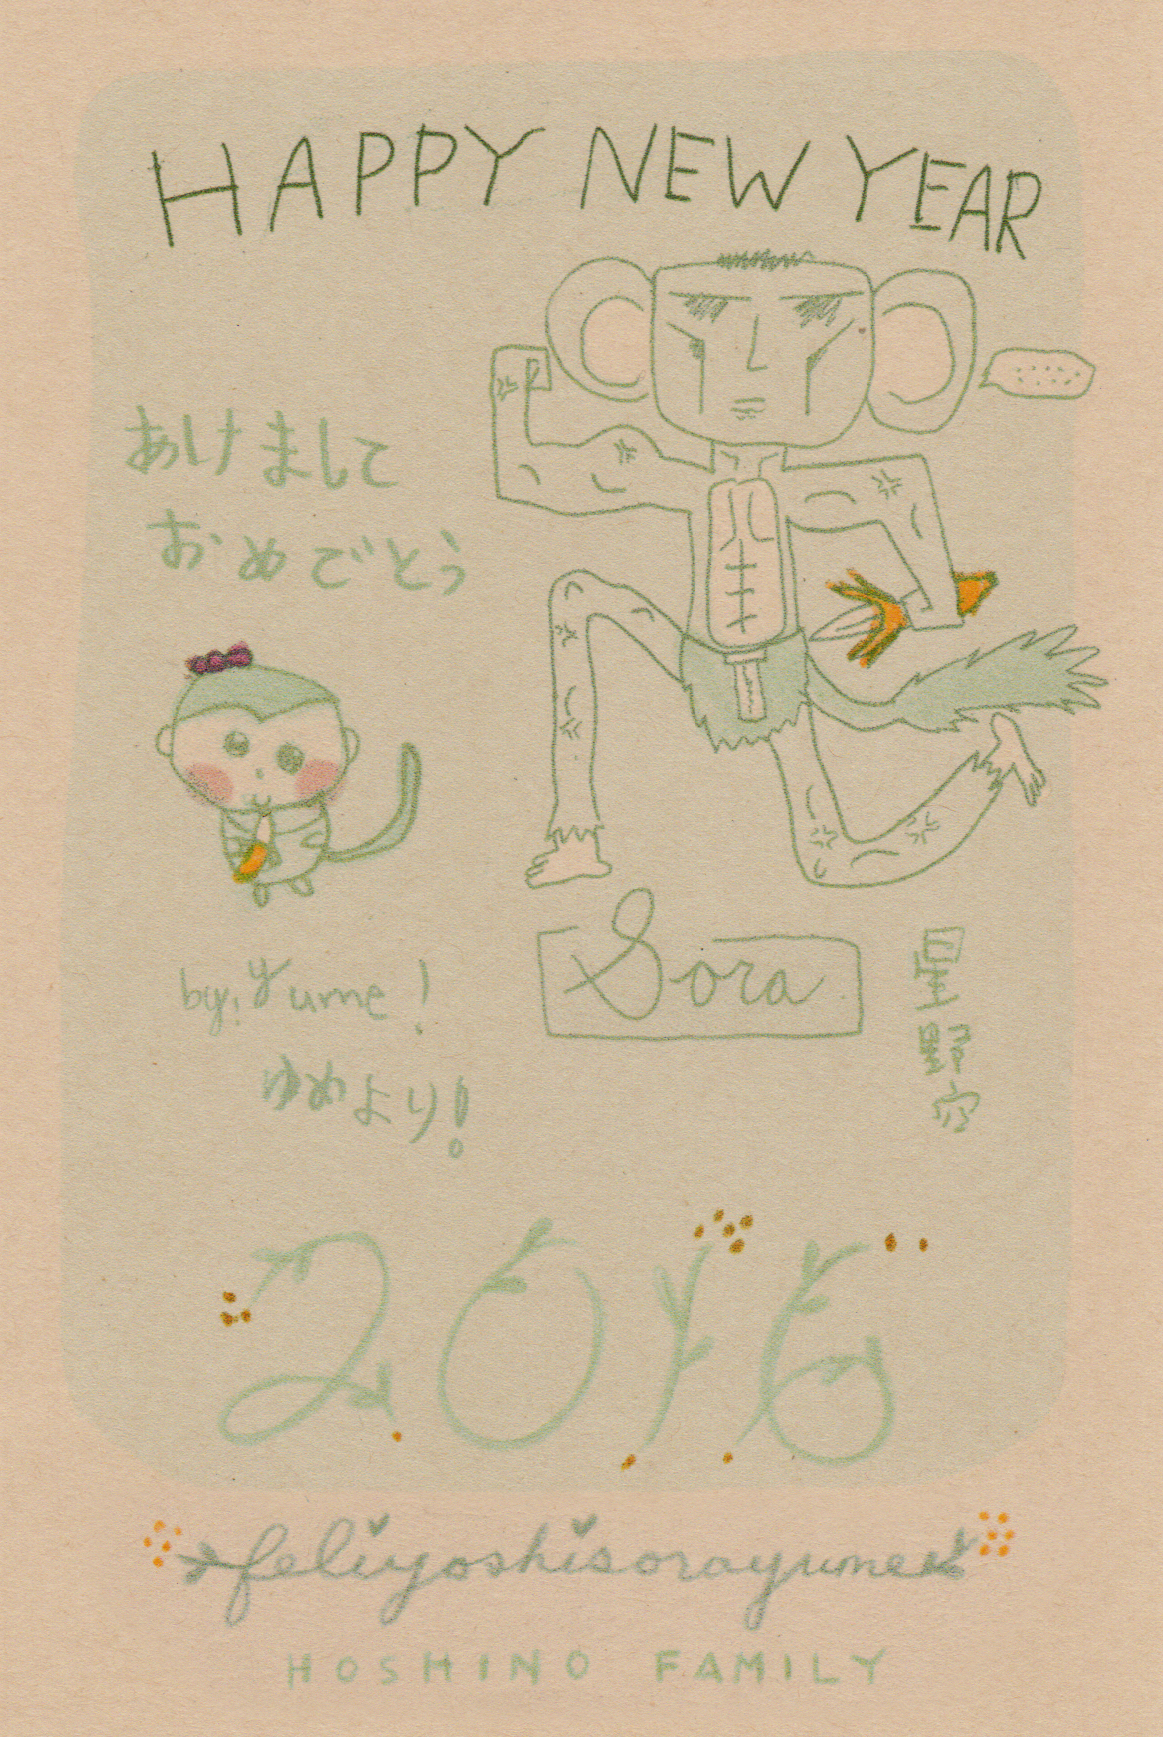 HAPPY NEW YEAR
あけまして
おめでとう
by. Yume!
ゆめより!
Sora
2016
feliyoshisorayume
HOSHINO FAMILY